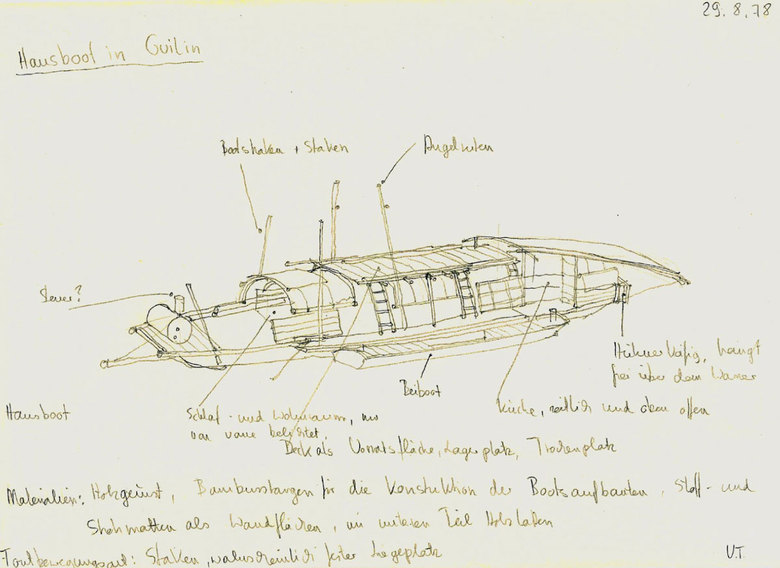 29.8.78
Hausboot in Guilin
Bootshaken + Staken
Angelruten
Steuer?
Hühnerkäfig, hängt
frei über dem Wasser
Beiboot
Hausboot
Schlaf- und Wohnraum, nur
von vorne belichtet,
Küche, seitlich und oben offen
Deck als Vorratsfläche, Lagerplatz, Trockenplatz
Materialien: Holzgerüst, Bambusstangen für die Konstuktion der Bootsaufbauten, Stoff- und
Strohmatten als Wandflächen, im unteren Teil Holz
Fortbewegungsart: Staken, wahrscheinlich fester Liegeplatz
V.T.